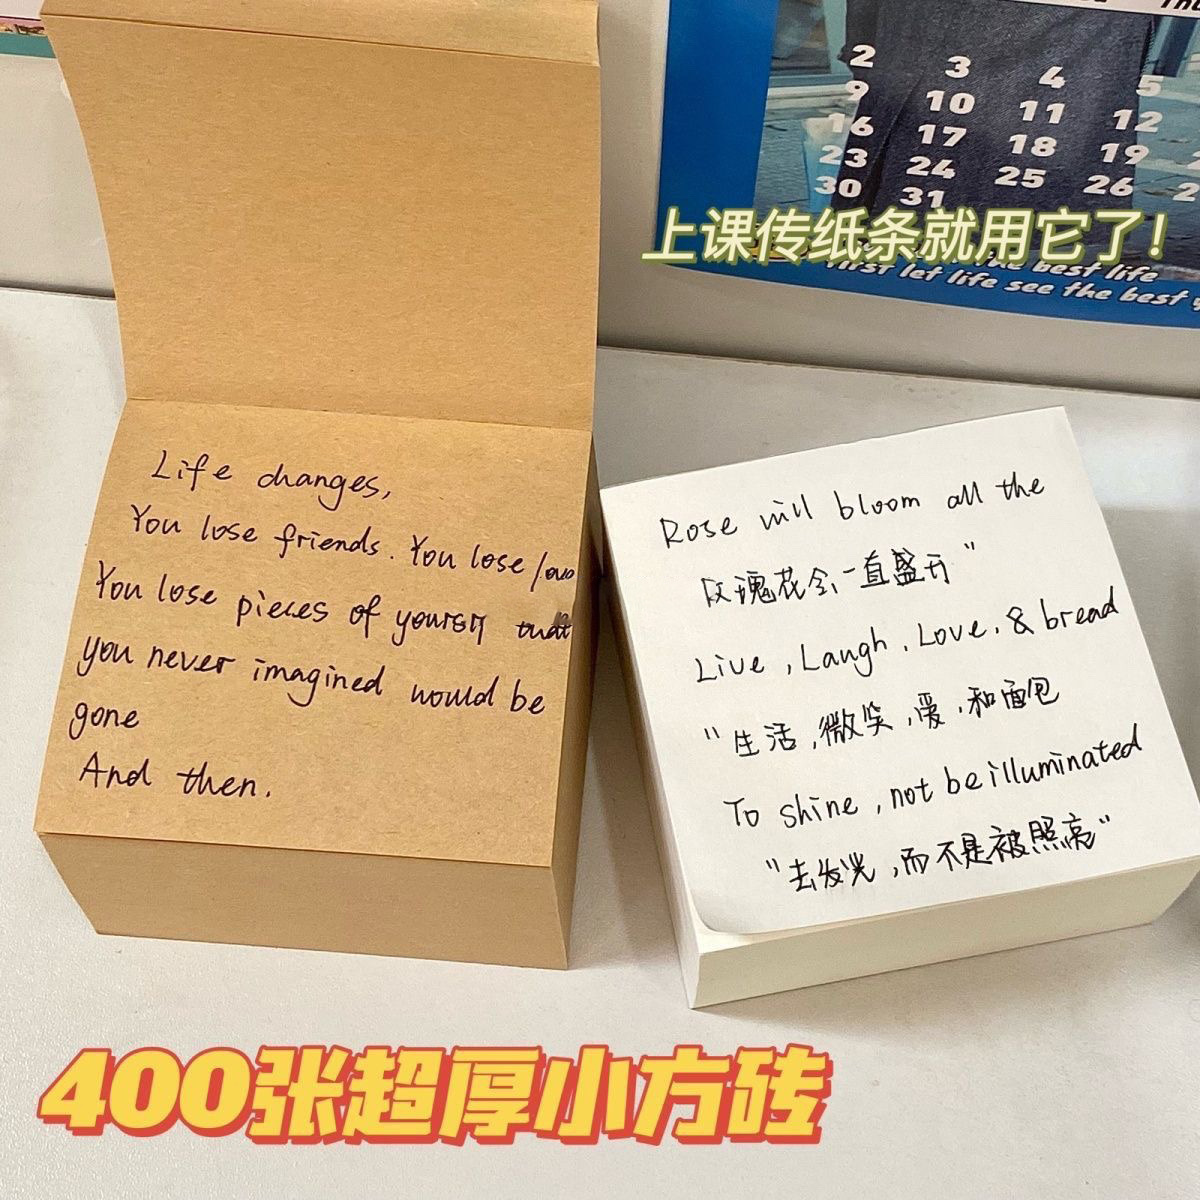 2 3 4 5
9 10 11 12
16 17 18 19
23 24 25 26
30 31
上课传纸条就用它了!
the best life
First let life see the best
Life changes,
You lose friends. You lose love
You lose pieces of yourself that
you never imagined would be
gone
And then.
Rose will bloom all the
玫瑰花会一直盛开"
Live , Laugh , Love , & bread
"生活,微笑,爱,和面包
To shine , not be illuminated
"去发光,而不是被照亮"
400张超厚小方砖